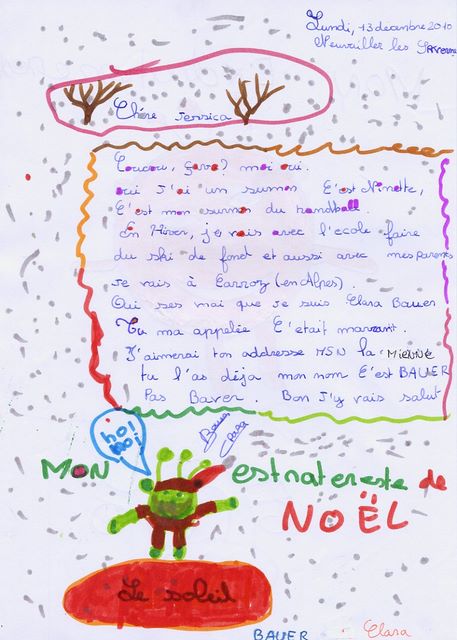 Lundi, 13 decembre 2010
Neuwiller les Saverne
Chére Jessica
Coucou, çava? moi oui.
oui J'ai un surnon C'est Ninette,
C'est mon surnom du handball.
En Hiver, je vais avec l'ecole faire
du ski de fond et aussi avec mes parents
je vais à Carroz (en Alpes).
Oui ses moi que je suis Clara Bauer
Tu ma appelée C'était marrant.
J'aimerai ton addresse MSN la Mienne
tu l'as déja mon nom C'est BAUER
Pas Baver. Bon J'y vais salut
Bauer
Clara
ho!
ho!
MON estratereste de
NOËL
Le soleil
BAUER Clara